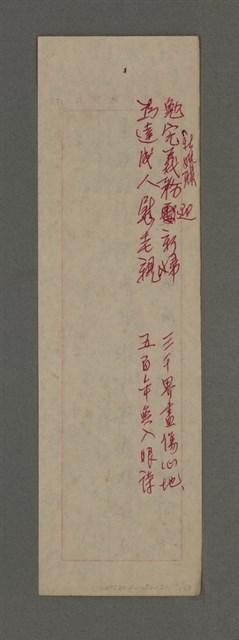 勉完義務迎新婦
為達成人慰老親
三千界盡傷心地、
五百年無入眼詩